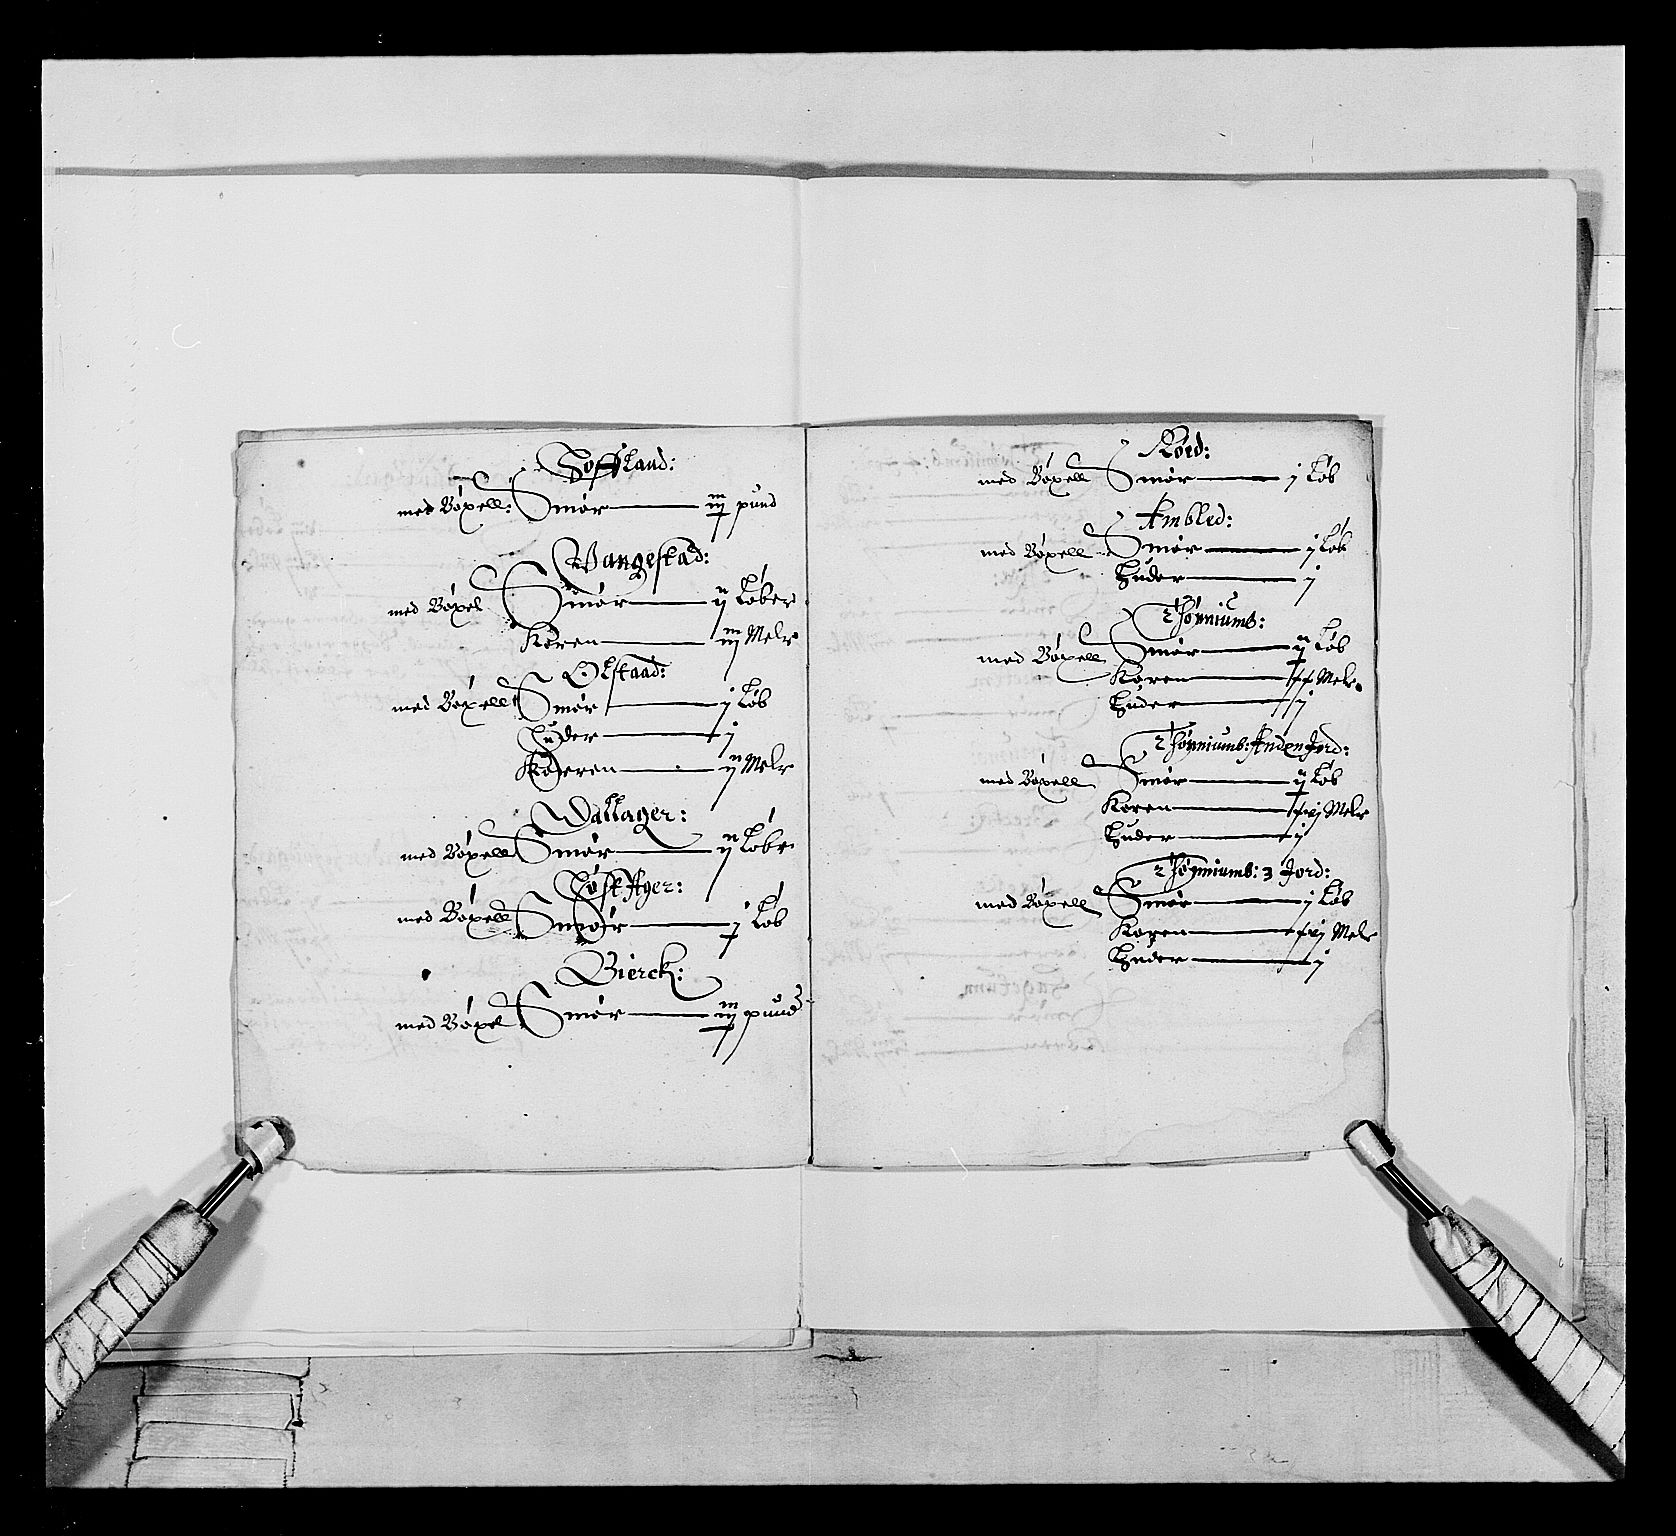 Soffland:
med Bøxell: Smør — iij pund
Wangestad:
med Bøxel Smør — ij Løber
Koren — iij Melr
Olstaad:
med Bøxell Smør — j Løb
Huder — j
Koren — ij Melr
Wallager:
med Bøxell Smør — ij Løbr
Ager:
med Bøxell Smør — j Løb
Bierck:
med Bøxel Smør — iij pund
Røed:
med Bøxell Smør — j Løb
Ambled:
med Bøxell Smør — j Løb
Huder — j
Thønniumb:
med Bøxell Smør — ij Løb
Koren — Melr
Huder — j
Thønniumb: Anden Jord:
med Bøxell Smør — ij Løb
Koren — Melr
Huder — j
Thønniumb: 3 Jord:
med Bøxell Smør — j Løb
Koren — Melr
Huder — j